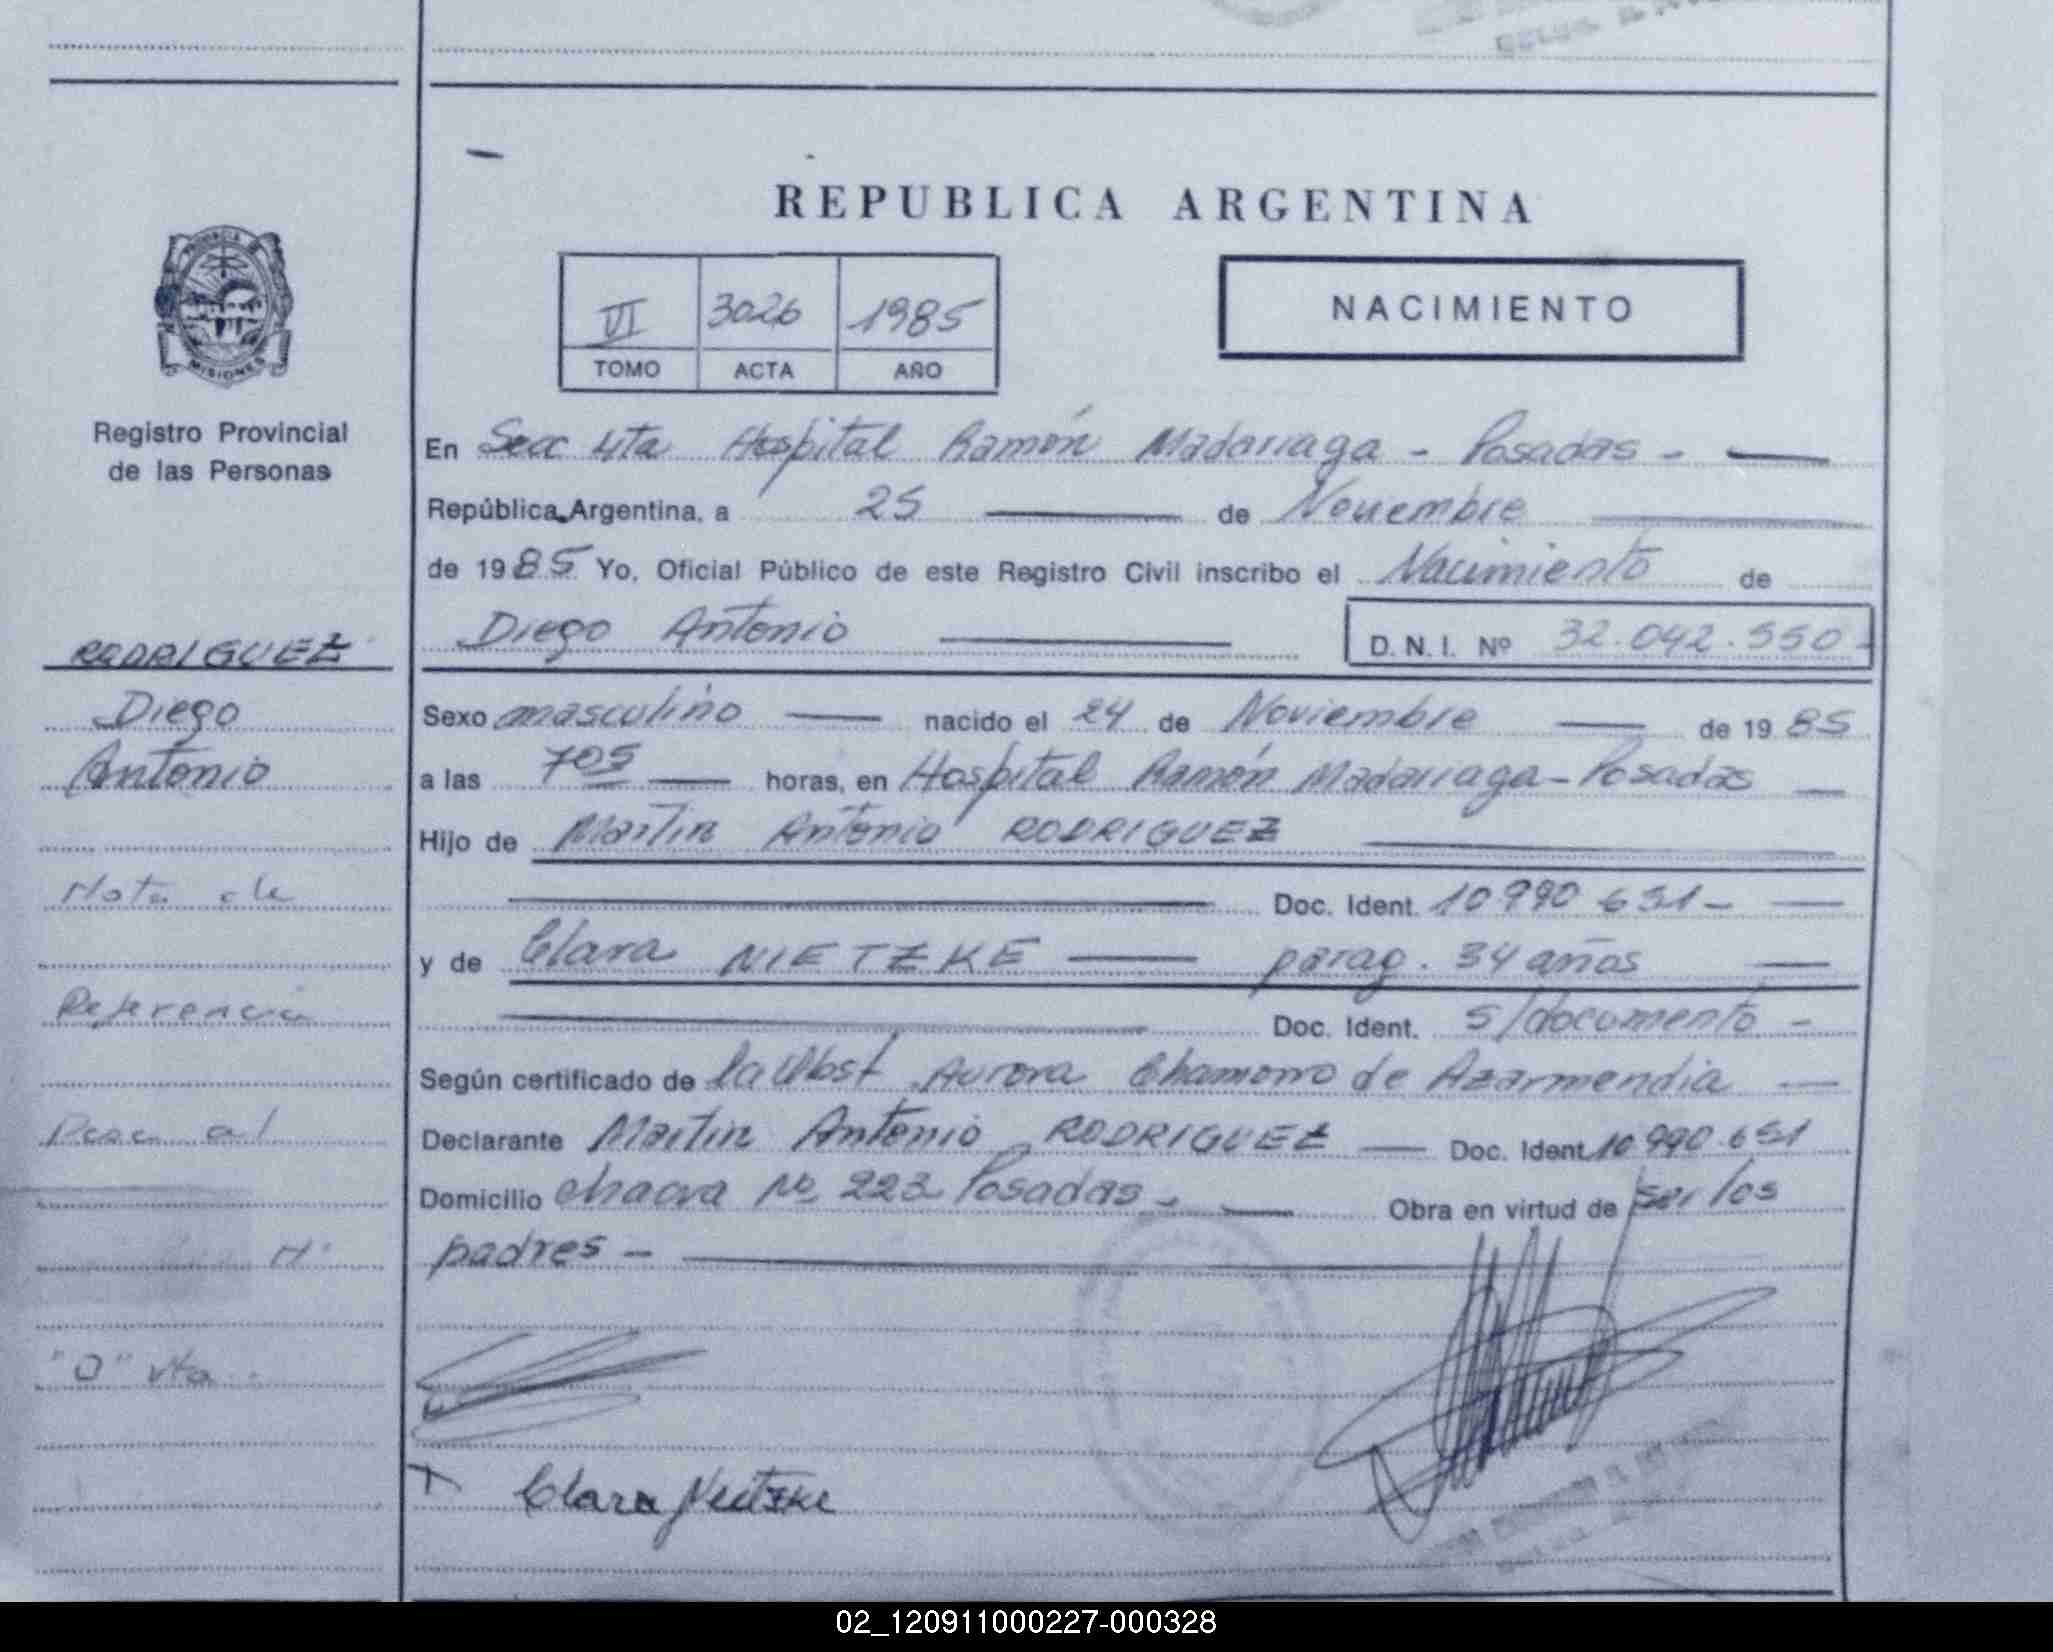 REPUBLICA ARGENTINA
VI 3026 1985
TOMO ACTA AÑO
NACIMIENTO
PROVINCIA DE
MISIONES
Registro Provincial
de las Personas
RODRIGUEZ
Diego
Antonio
Nota de
Referencia
Pasa al
"O" vta.
En Secc 4ta Hospital Ramón Madariaga - Posadas -
República Argentina, a 25 de Noviembre
de 1985 Yo, Oficial Público de este Registro Civil inscribo el Nacimiento de
Diego Antonio D. N. I. Nº 32.042.550-
Sexo masculino nacido el 24 de Noviembre de 1985
a las 705 horas, en Hospital Ramón Madariaga - Posadas
Hijo de Martin Antonio RODRIGUEZ
Doc. Ident. 10 990 631-
y de Clara NIETZKE parag. 34 años
Doc. Ident. s/documento -
Según certificado de la Obst Aurora Chamorro de Azarmendia
Declarante Martin Antonio RODRIGUEZ Doc. Ident. 10 990.631
Domicilio chacra Nº 223 Posadas - Obra en virtud de ser los
padres -
Clara Neitzke
02_120911000227-000328